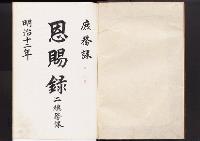 庶務課
恩賜録
二總務課
明治十二年